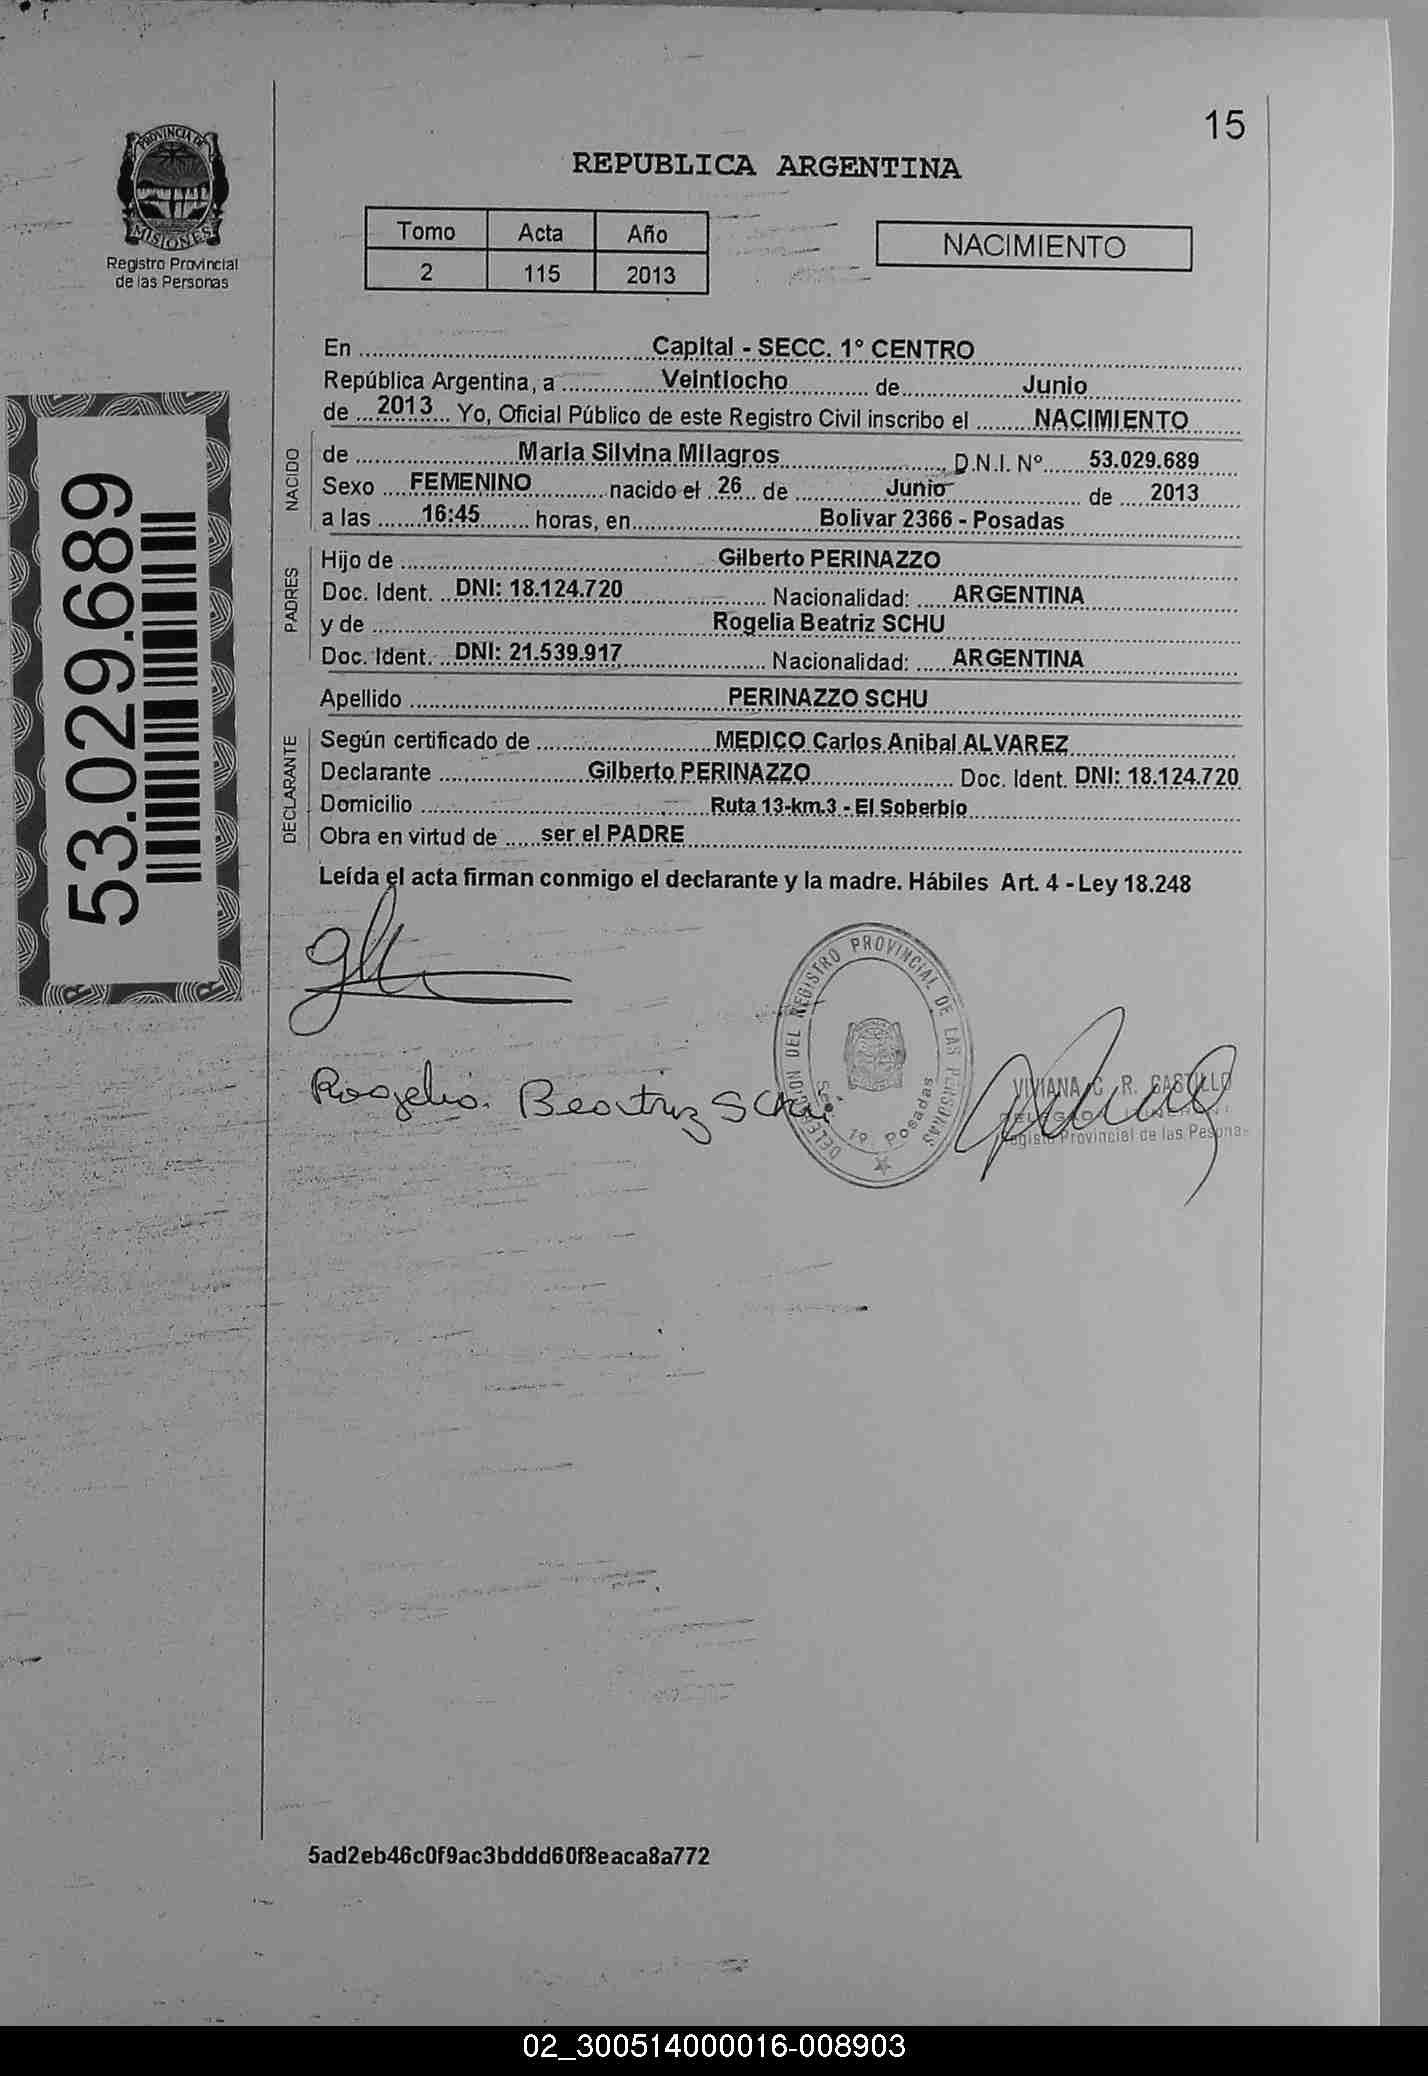 15
PROVINCIA DE
MISIONES
Registro Provincial
de las Personas
REPUBLICA ARGENTINA
Tomo Acta Año
2 115 2013
NACIMIENTO
53.029.689
En Capital - SECC. 1° CENTRO
República Argentina, a Veintiocho de Junio
de 2013 Yo, Oficial Público de este Registro Civil inscribo el NACIMIENTO
NACIDO
de Maria Silvina Milagros D.N.I. N° 53.029.689
Sexo FEMENINO nacido el 26 de Junio de 2013
a las 16:45 horas, en Bolivar 2366 - Posadas
PADRES
Hijo de Gilberto PERINAZZO
Doc. Ident. DNI: 18.124.720 Nacionalidad: ARGENTINA
y de Rogelia Beatriz SCHU
Doc. Ident. DNI: 21.539.917 Nacionalidad: ARGENTINA
Apellido PERINAZZO SCHU
DECLARANTE
Según certificado de MEDICO Carlos Anibal ALVAREZ
Declarante Gilberto PERINAZZO Doc. Ident. DNI: 18.124.720
Domicilio Ruta 13-km.3 - El Soberbio
Obra en virtud de ser el PADRE
Leída el acta firman conmigo el declarante y la madre. Hábiles Art. 4 - Ley 18.248
DELEGACION DEL REGISTRO PROVINCIAL DE LAS PERSONAS
Sec. 1º Posadas
Rogelia Beatriz Schu
VIVIANA C. R. CASTILLO
Registro Provincial de las Personas
5ad2eb46c0f9ac3bddd60f8eaca8a772
02_300514000016-008903